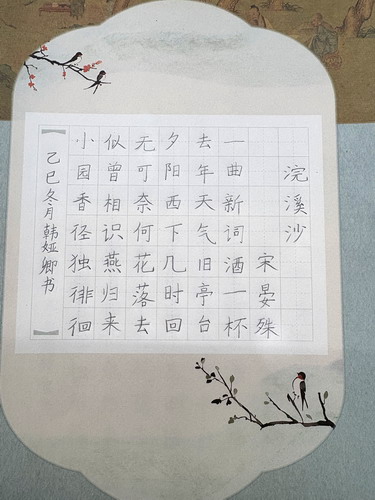 浣溪沙
宋 晏殊
一曲新词酒一杯
去年天气旧亭台
夕阳西下几时回
无可奈何花落去
似曾相识燕归来
小园香径独徘徊
乙巳冬月韩娅卿书